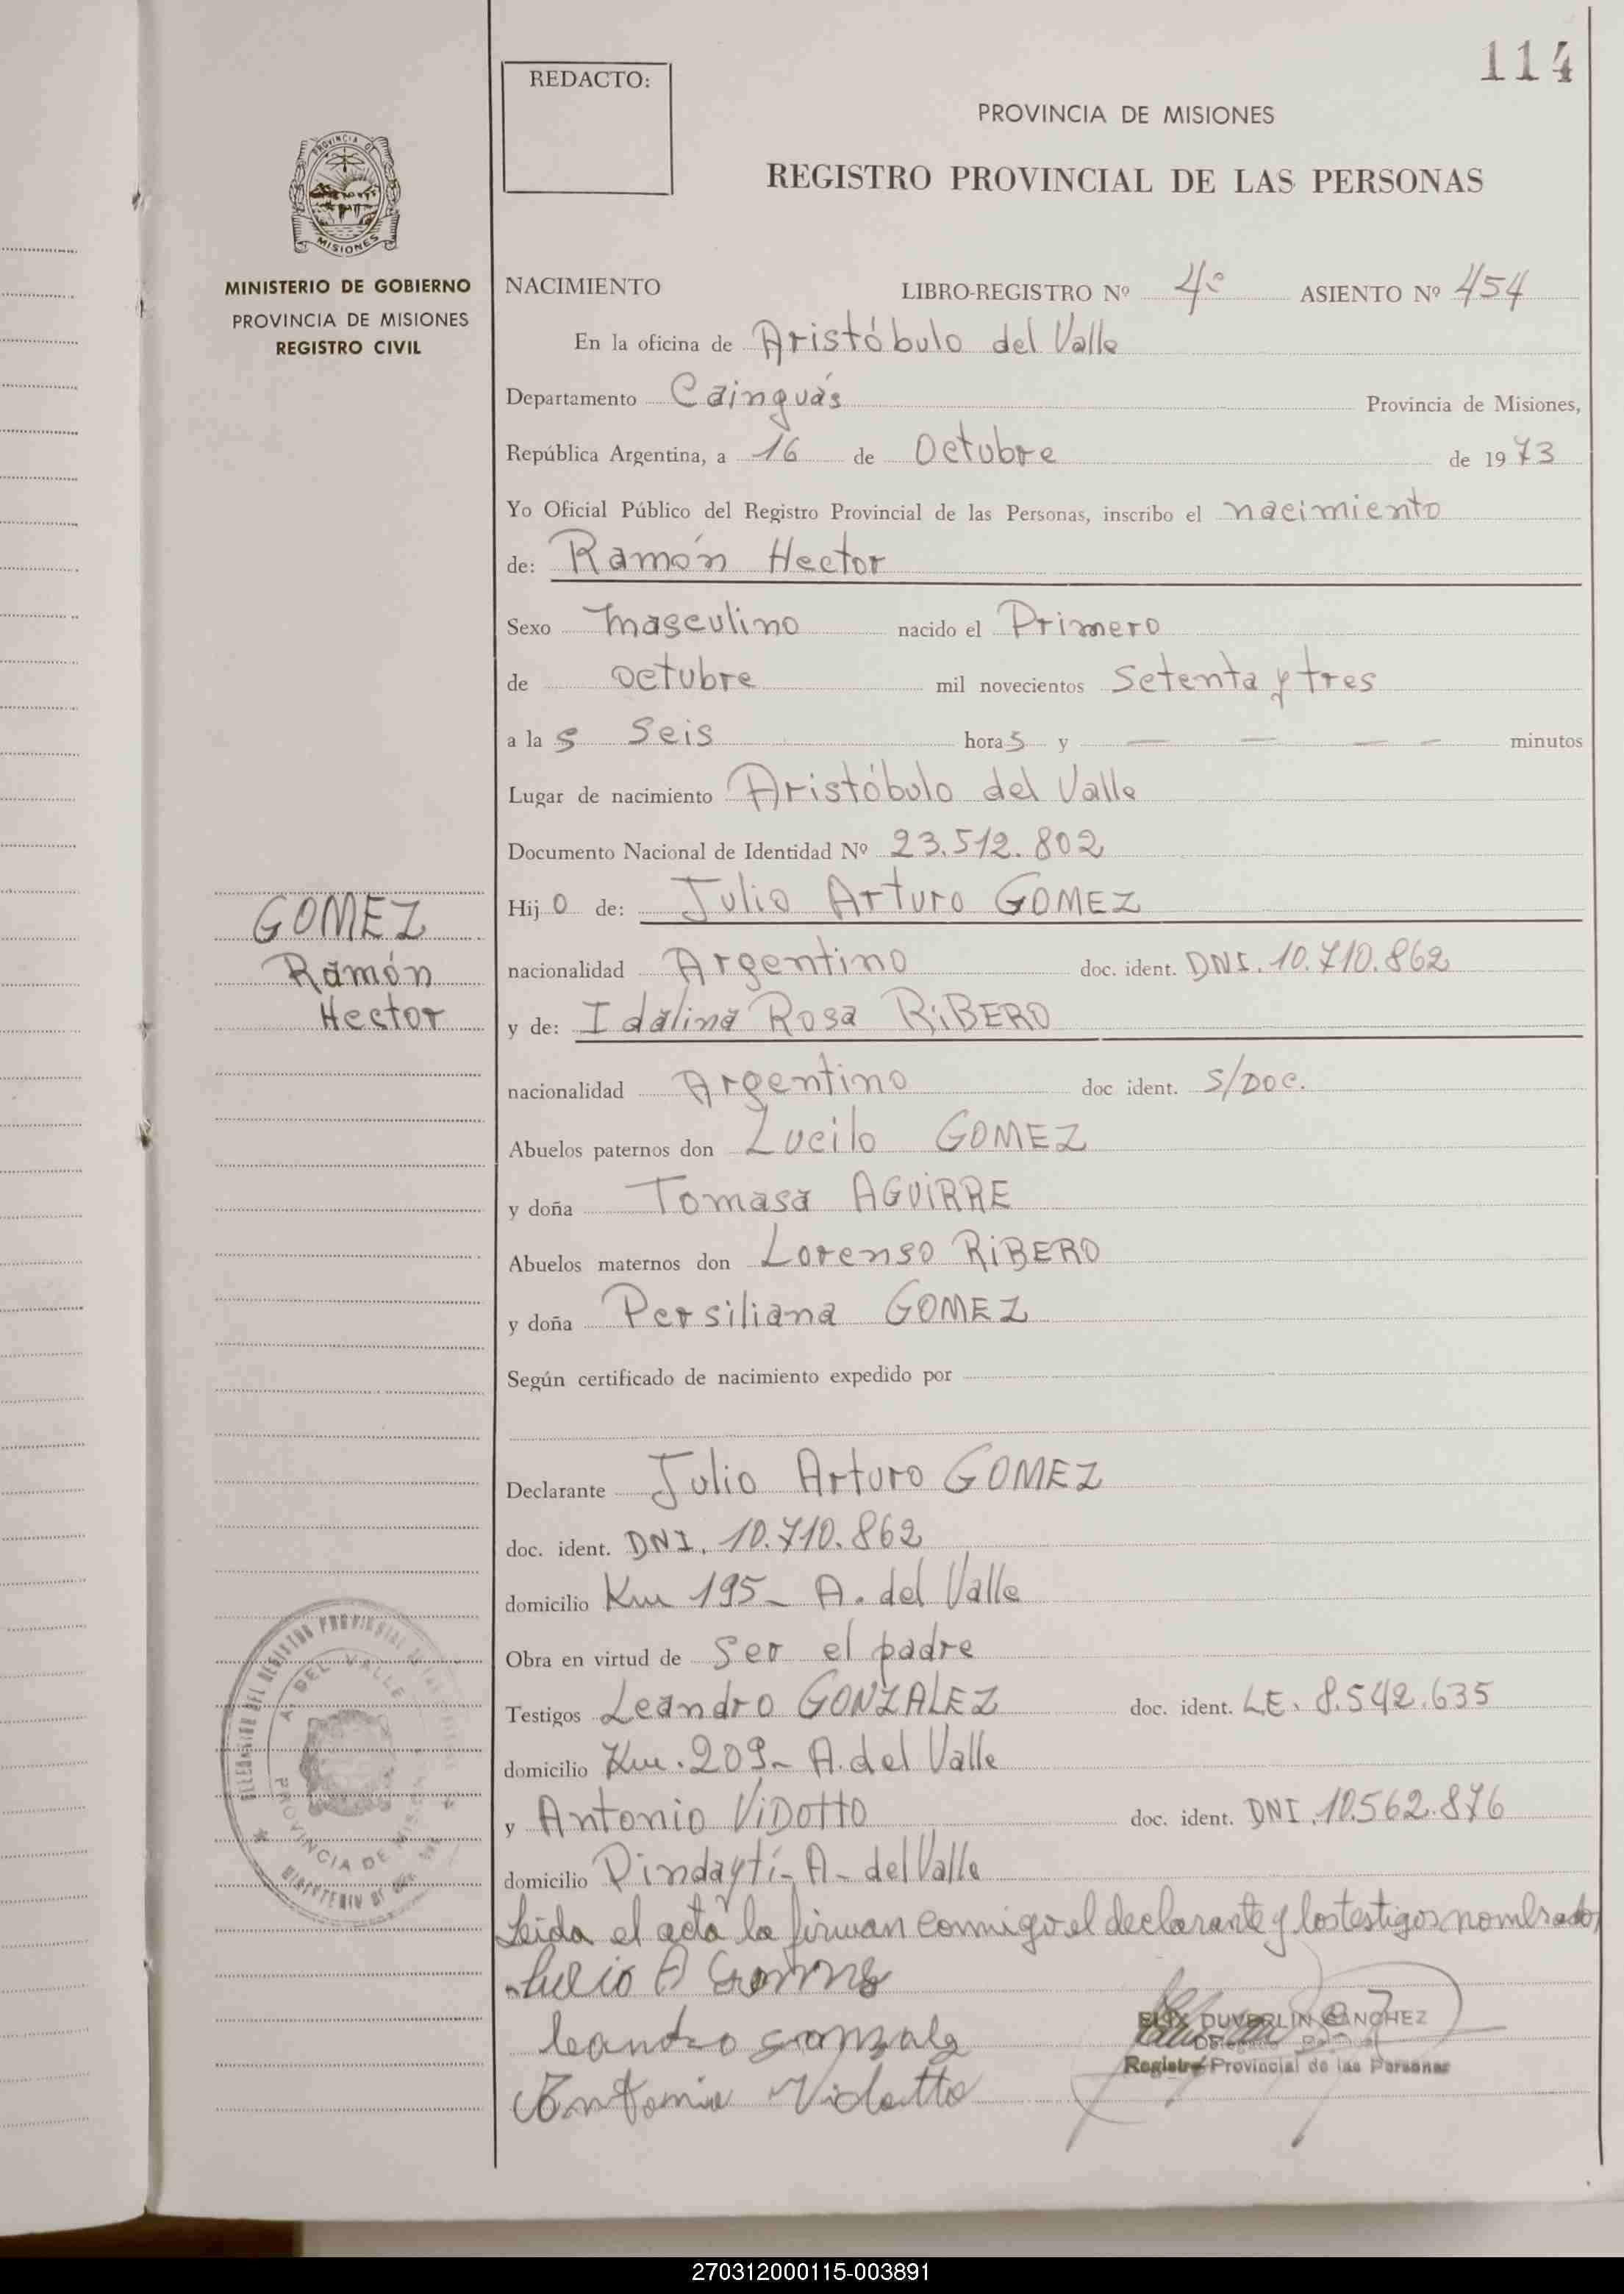 114
REDACTO:
PROVINCIA DE MISIONES
REGISTRO PROVINCIAL DE LAS PERSONAS
PROVINCIA DE
MISIONES
MINISTERIO DE GOBIERNO
PROVINCIA DE MISIONES
REGISTRO CIVIL
NACIMIENTO LIBRO-REGISTRO Nº 4º ASIENTO Nº 454
En la oficina de Aristóbulo del Valle
Departamento Cainguás Provincia de Misiones,
República Argentina, a 16 de Octubre de 1973
Yo Oficial Público del Registro Provincial de las Personas, inscribo el nacimiento
de: Ramón Hector
Sexo masculino nacido el Primero
de octubre mil novecientos setenta y tres
a las seis horas y — — — — minutos
Lugar de nacimiento Aristóbulo del Valle
Documento Nacional de Identidad Nº 23.512.802
GOMEZ
Ramón
Hector
Hijo de: Julio Arturo GOMEZ
nacionalidad Argentino doc. ident. DNI. 10.710.862
y de: Idalina Rosa RiBERO
nacionalidad Argentino doc ident. S/DOC.
Abuelos paternos don Lucilo GOMEZ
y doña Tomasa AGUiRRE
Abuelos maternos don Lorenso RiBERO
y doña Persiliana GOMEZ
Según certificado de nacimiento expedido por
Declarante Julio Arturo GOMEZ
doc. ident. DNI. 10.710.862
domicilio Km 195- A. del Valle
Obra en virtud de ser el padre
Testigos Leandro GONZALEZ doc. ident. LE. 8.542.635
domicilio Km. 209- A. del Valle
y Antonio ViDOTTO doc. ident. DNI. 10.562.876
domicilio Pindaytí- A- del Valle
Leida el acta la firman conmigo el declarante y los testigos nombrados
Julio A
leandro
Antonio Vidotto
DEL REGISTRO PROVINCIAL
A. DEL VALLE
PROVINCIA DE MISIONES
MINISTERIO DE
ELIX DUVERLIN SANCHEZ
Registro Provincial de las Personas
270312000115-003891